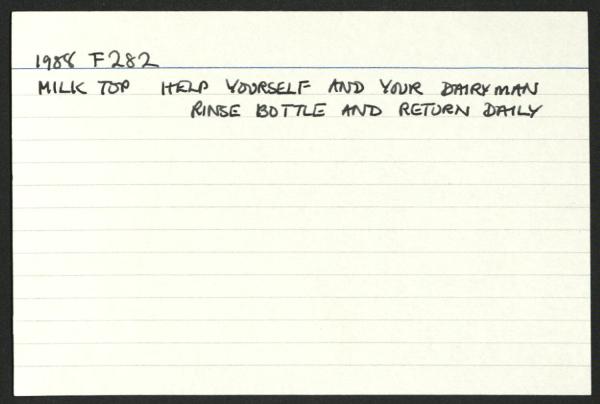 1988 F282
MILK TOP HELP YOURSELF AND YOUR DAIRYMAN
RINSE BOTTLE AND RETURN DAILY